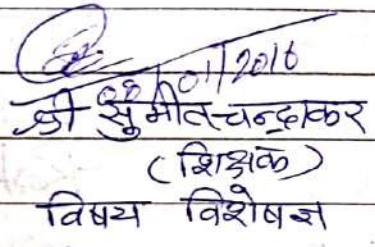 08/01/2016
श्री सुमीत चन्द्राकर
(शिक्षक)
विषय विशेषज्ञ